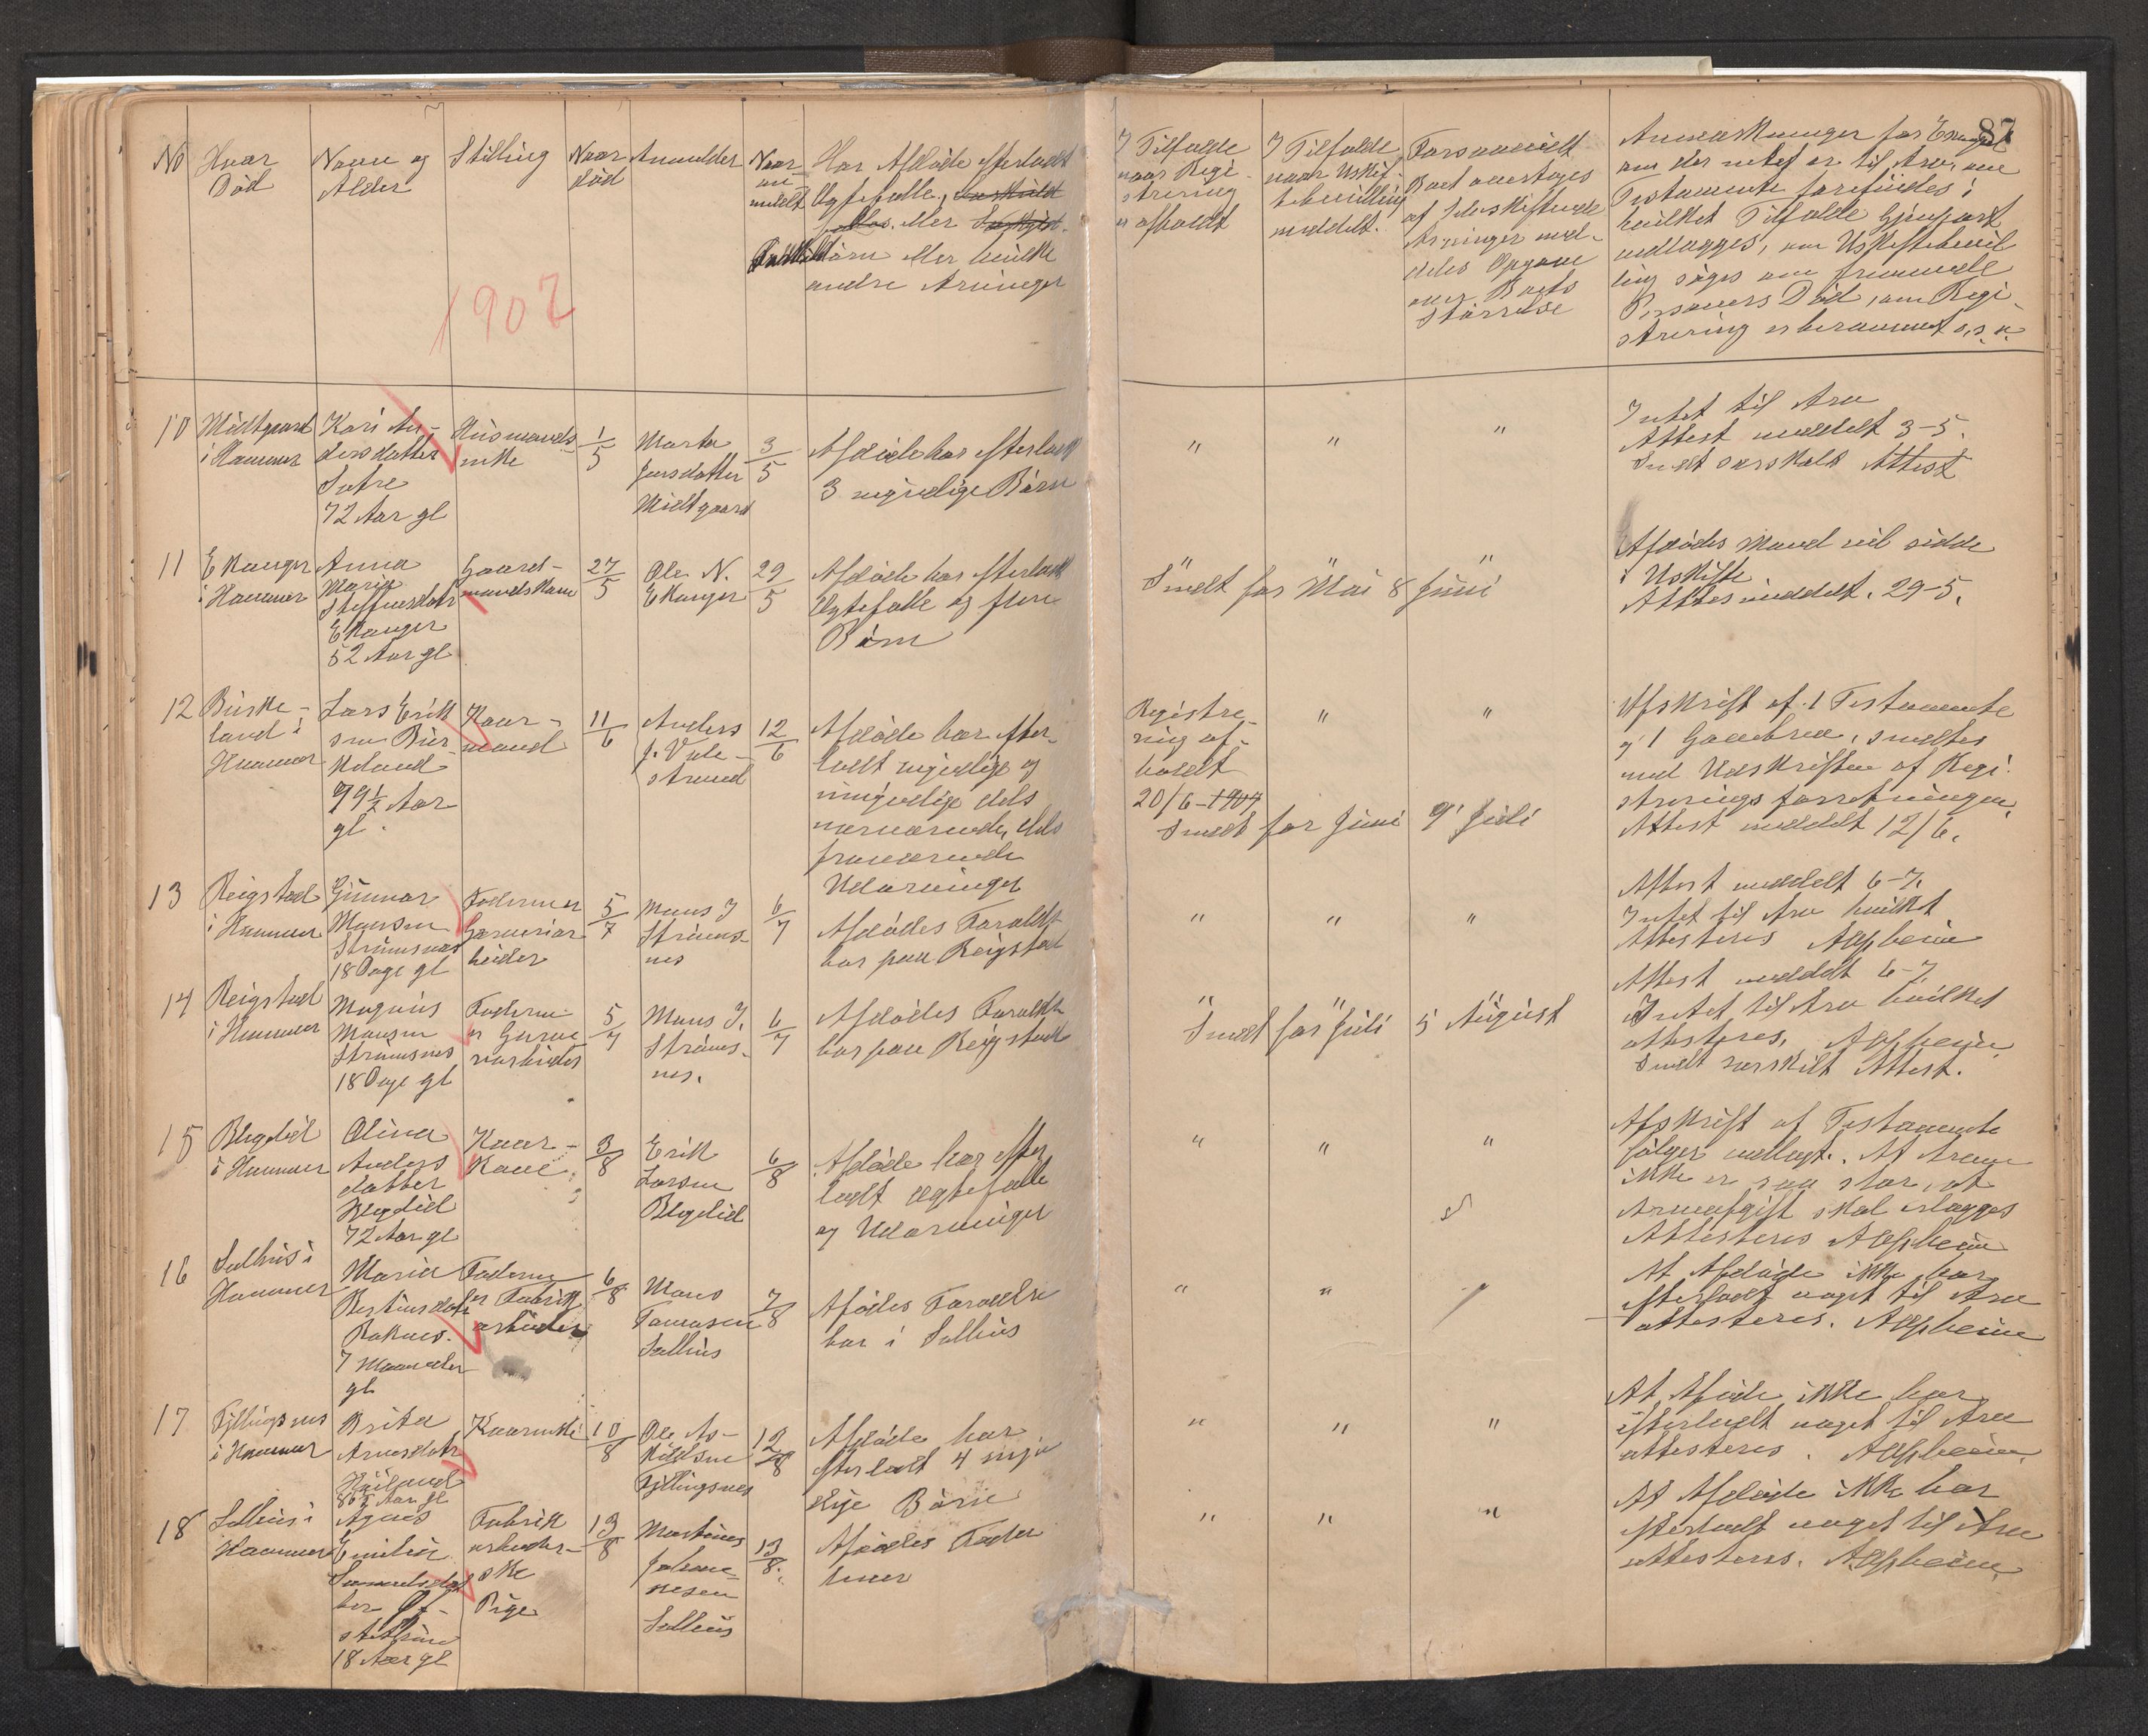 No
Hvor
Død
Navn og
Alder
Stilling
Naar
død
Anmelder
Naar
an-
meldt
Har Afdøde efterladt
Ægtefælle,
eller
Børn eller hvilke
andre Arvinger
I Tilfælde
naar Regi-
strering
er afholdt
I Tilfælde
naar Uskif-
tebevilling
meddelt.
Forsaavidt
Boet overtages
af selvskiftende
Arvinger med-
deles Opgave
over Boets
Størrelse
87
Anmærkninger for Exempel
om der intet er til Arv, om
Testamente forefindes i
hvilket Tilfælde Gjenpart
vedlægges, om Uskiftebevil
ling søges om fremmede
Personers Død, om Regi-
strering er berammet o.s.v.
1907
10
Midtgaard
i Hammer
Kari An-
dersdatter
Sætre
72 Aar gl
Husmands-
enke
1/5
Marta
Jensdatter
Midtgaard
3/5
Afdøde har efterladt
3 myndige Børn
"
"
"
Intet til Arv
Attest meddelt 3-5.
Sendt særskilt Attest
11
Ekanger
i Hammer
Anna
Maria
Steffensdatr
Ekanger
52 Aar gl
Gaard-
mandskone
27/5
Ole N.
Ekanger
29/5
Afdøde har efterladt
Ægtefælle og flere
Børn
"
"
"
Sendt for Mai 8 Juni
Afdødes Mand vil sidde
i Uskifte
Attest meddelt. 29-5.
12
Birke-
land i
Hammer
Lars Erik
sen Bir-
keland
79½ Aar
gl.
Kaar-
mand
11/6
Anders
J. Vale-
strand
12/6
Afdøde har efter-
ladt myndige og
umyndige dels
nærværende, dels
fraværende
Udarvinger
Registre-
ring af-
holdt
20/6-1907
"
"
Sendt for Juni 9' Juli
Afskrift af 1 Testamente
og 1 Gavebrev, sendtes
med Udskriften af Regi-
streringsforretningen.
Attest meddelt 12/6.
13
Reigstad
i Hammer
Gunnar
Monsen
Strømsnes
18 Dage gl
Faderen er
Garveriar
beider
5/7
Mons J
Strøms-
nes
6/7
Afdødes Forældre
bor paa Reigstad
"
"
"
Attest meddelt 6-7.
Intet til Arv hvilket
Attesteres
14
Reigstad
i Hammer
Magnus
Monsen
Strømsnes
18 Dage gl
Faderen
er Garve
riarbeider
5/7
Mons J.
Strøms-
nes.
6/7
Afdødes Forældre
bor paa Reigstad
"
"
"
Sendt for Juli 5 August
Attest meddelt 6-7
Intet til Arv hvilket
attesteres,
Sendt særskilt Attest.
15
Blegelid
i Hammer
Olina
Anders
datter
Blegelid
72 Aar gl
Kaar-
kone
3/8
Erik
Larsen
Blegelid
6/8
Afdøde har efter
ladt Ægtefælle
og Udarvinger
"
"
"
Afskrift af Testamente
følger vedlagt. At Arven
ikke er saa stor, at
Arveafgift skal erlægges
Attesteres
16
Salhus i
Hammer
Maria
Kristiansdatr
Boknes.
7 Maaneder
gl.
Faderen
er Fabrik
arbeider
6/8
Mons
Tomasen
Salhus
7/8
Afdødes Forældre
bor i Salhus
"
"
At Afdøde ikke har
efterladt noget til Arv
attesteres.
17
Fyllingsnes
i Hammer
Brita
Arnesdatr
86½ Aar gl
Kaarenke
10/8
Ole As-
kildsen
Fyllingsnes
12/8
Afdøde har
efterladt 4 myn
dige Børn
"
"
"
At Afdøde ikke har
efterladt noget til Arv
attesteres.
18
Salhus i
Hammer
Agnes
Emilie
Samuelsdat
ter
18 Aar gl
Fabrik
arbeider-
ske
Pige
13/8
Martinus
Johan-
nesen
Salhus
13/8
Afdødes Fader
lever
"
"
"
At Afdøde ikke har
efterladt noget til Arv
attesteres.